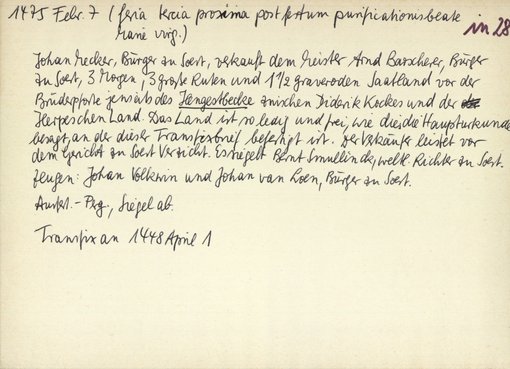 1475 Febr. 7 (feria tercia proxima post festum purificationis beate
Marie virg.)
in 28
Johan Mecker, Bürger zu Soest, verkauft dem Meister Arnd Barscherer, Bürger
zu Soest, 3 Morgen, 3 große Ruten und 1 1/2 graveroden Saatland vor der
Brüderpforte jenseits des Jengestbecke zwischen Diderik Kockes und der
Herpeschen Land. Das Land ist so ledig und frei, wie dies die Haupturkunde
besagt, an der dieser Transfixbrief befestigt ist. Der Verkäufer leistet vor
dem Gericht zu Soest Verzicht. Es siegelt Bernt Smullinck, weltl. Richter zu Soest.
Zeugen: Johan Volkwin und Johan van Loen, Bürger zu Soest.
Ausf. - Perg., Siegel ab.
Transfix an 1448 April 1